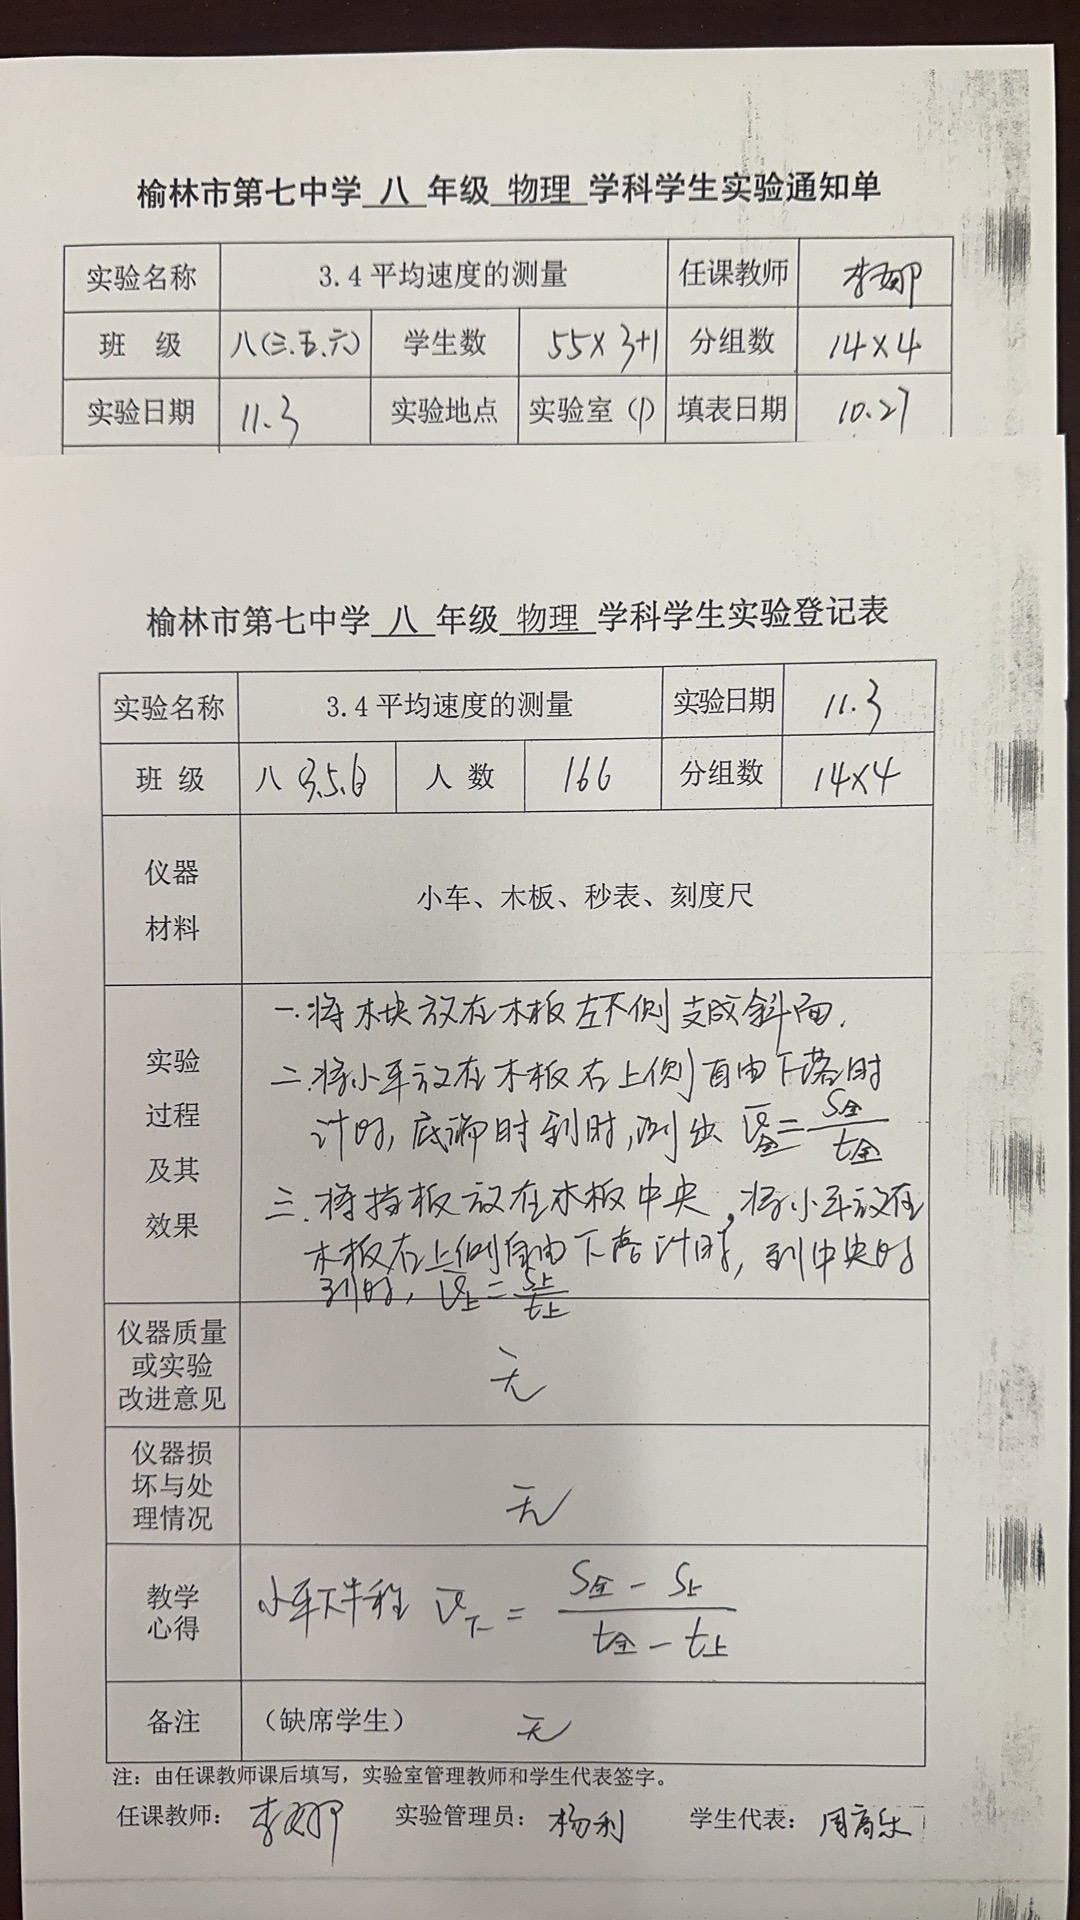 榆林市第七中学 八 年级 物理 学科学生实验通知单
实验名称 3.4平均速度的测量 任课教师 李娜
班 级 八(三.五.六) 学生数 55×3+1 分组数 14×4
实验日期 11.3 实验地点 实验室(1) 填表日期 10.27
榆林市第七中学 八 年级 物理 学科学生实验登记表
实验名称 3.4平均速度的测量 实验日期 11.3
班 级 八 3.5.6 人 数 166 分组数 14×4
仪器
材料
小车、木板、秒表、刻度尺
实验
过程
及其
效果
一.将木块放在木板左下侧支成斜面.
二.将小车放在木板右上侧自由下落时
计时,底端时到时,测出 v̄全=S全/t全
三.将挡板放在木板中央,将小车放在
木板右上侧自由下落计时,到中央时
到时,v̄上=S上/t上
仪器质量
或实验
改进意见
无
仪器损
坏与处
理情况
无
教学
心得
小车下半程 v̄下=(S全-S上)/(t全-t上)
备注 (缺席学生) 无
注:由任课教师课后填写,实验室管理教师和学生代表签字。
任课教师:李娜 实验管理员:杨利 学生代表: